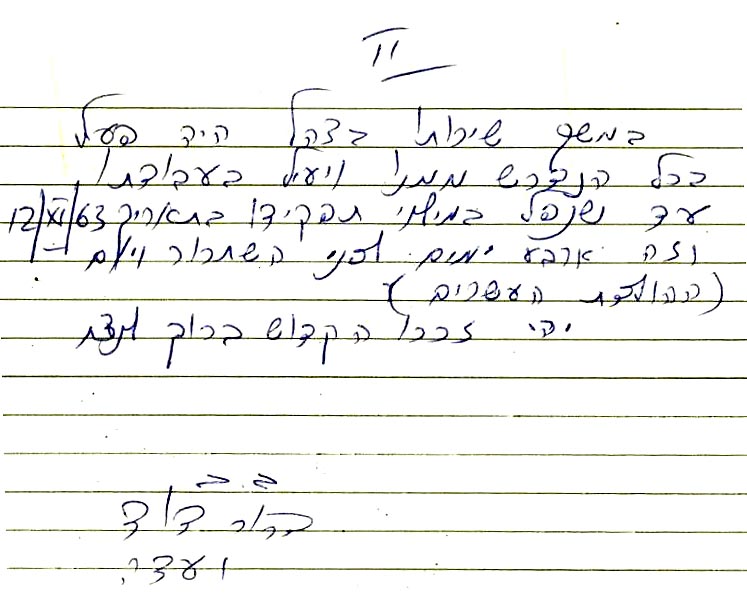 II
במשך שירותו בצהל היה פעל
בכל הנדרש ממנו ויעיל בעבודתו
עד שנפל במילוי תפקידו בתאריך 12/XI/63
וזה ארבע ימים לפני השחרור ויום
(ההולדת העשרים)
יהי זכרו הקדוש ברוך לנצח
דוד